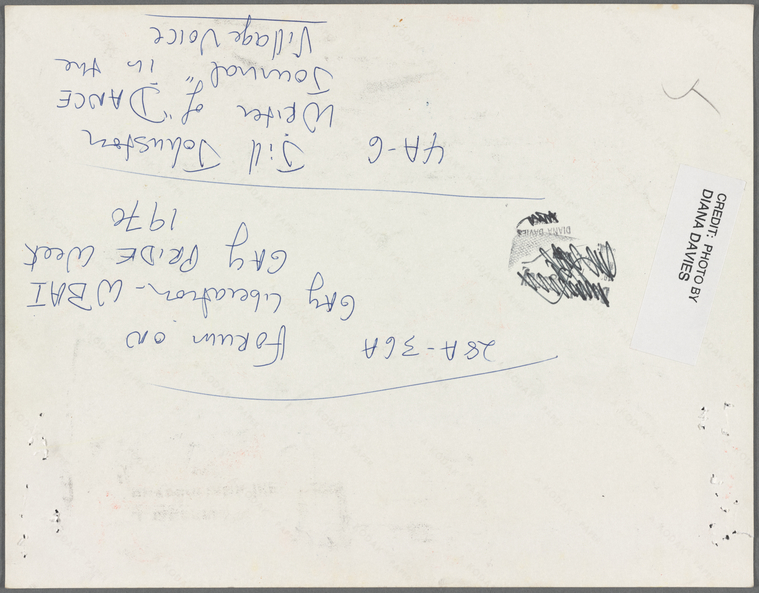 28A-36A Forum on
GAy Liberation - WBAI
GAy PRiDE Week
1970
4A-6 Jill Johnston
Writer of "DANCE
Journal" in the
Village Voice
CREDIT: PHOTO BY
DIANA DAVIES
DIANA DAVIES